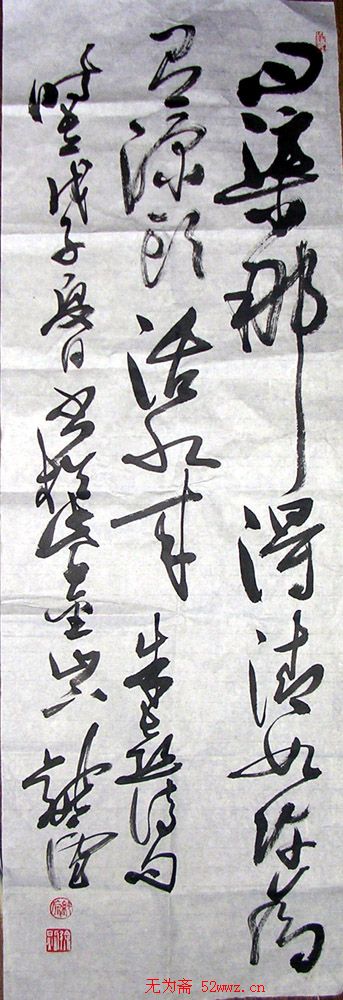 问渠那得清如许为
有源头活水来 朱熹诗句
时在戊子夏日书于
无为斋 52wwz.cn